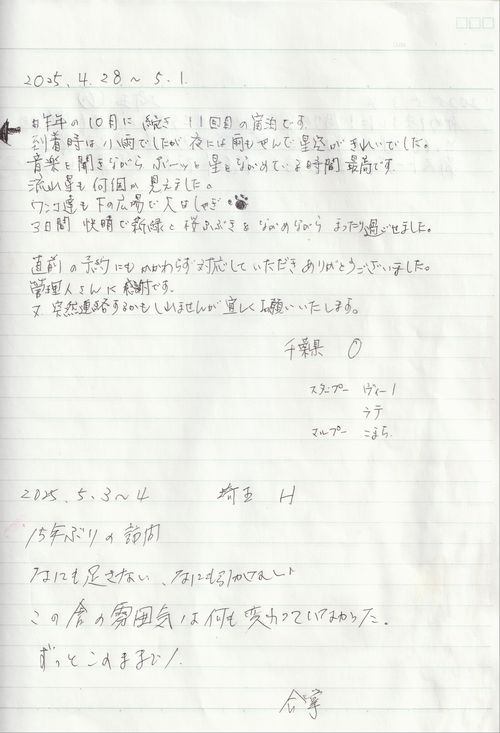 2025.4.28～5.1
昨年の10月に続き 11回目の宿泊です。
到着時は小雨でしたが夜には雨もやんで星空がきれいでした。
音楽を聞きながら ボーッと星をながめている時間最高です。
流れ星も何個か見えました。
ワンコ達も下の広場で大はしゃぎ
3日間 快晴で新緑と桜ふぶきをながめながら まったり過ごせました。
直前の予約にもかかわらず対応していただきありがとうございました。
管理人さんに感謝です。
又 突然連絡するかもしれませんが宜しくお願いいたします。
千葉県 O
スタンプー ヴィーノ
ラテ
マルプー こまち
2025.5.3～4 埼玉 H
15年ぶりの訪問
なにも足さない、なにも引かない
この舎の雰囲気は何も変わっていなかった。
ずっとこのままで!